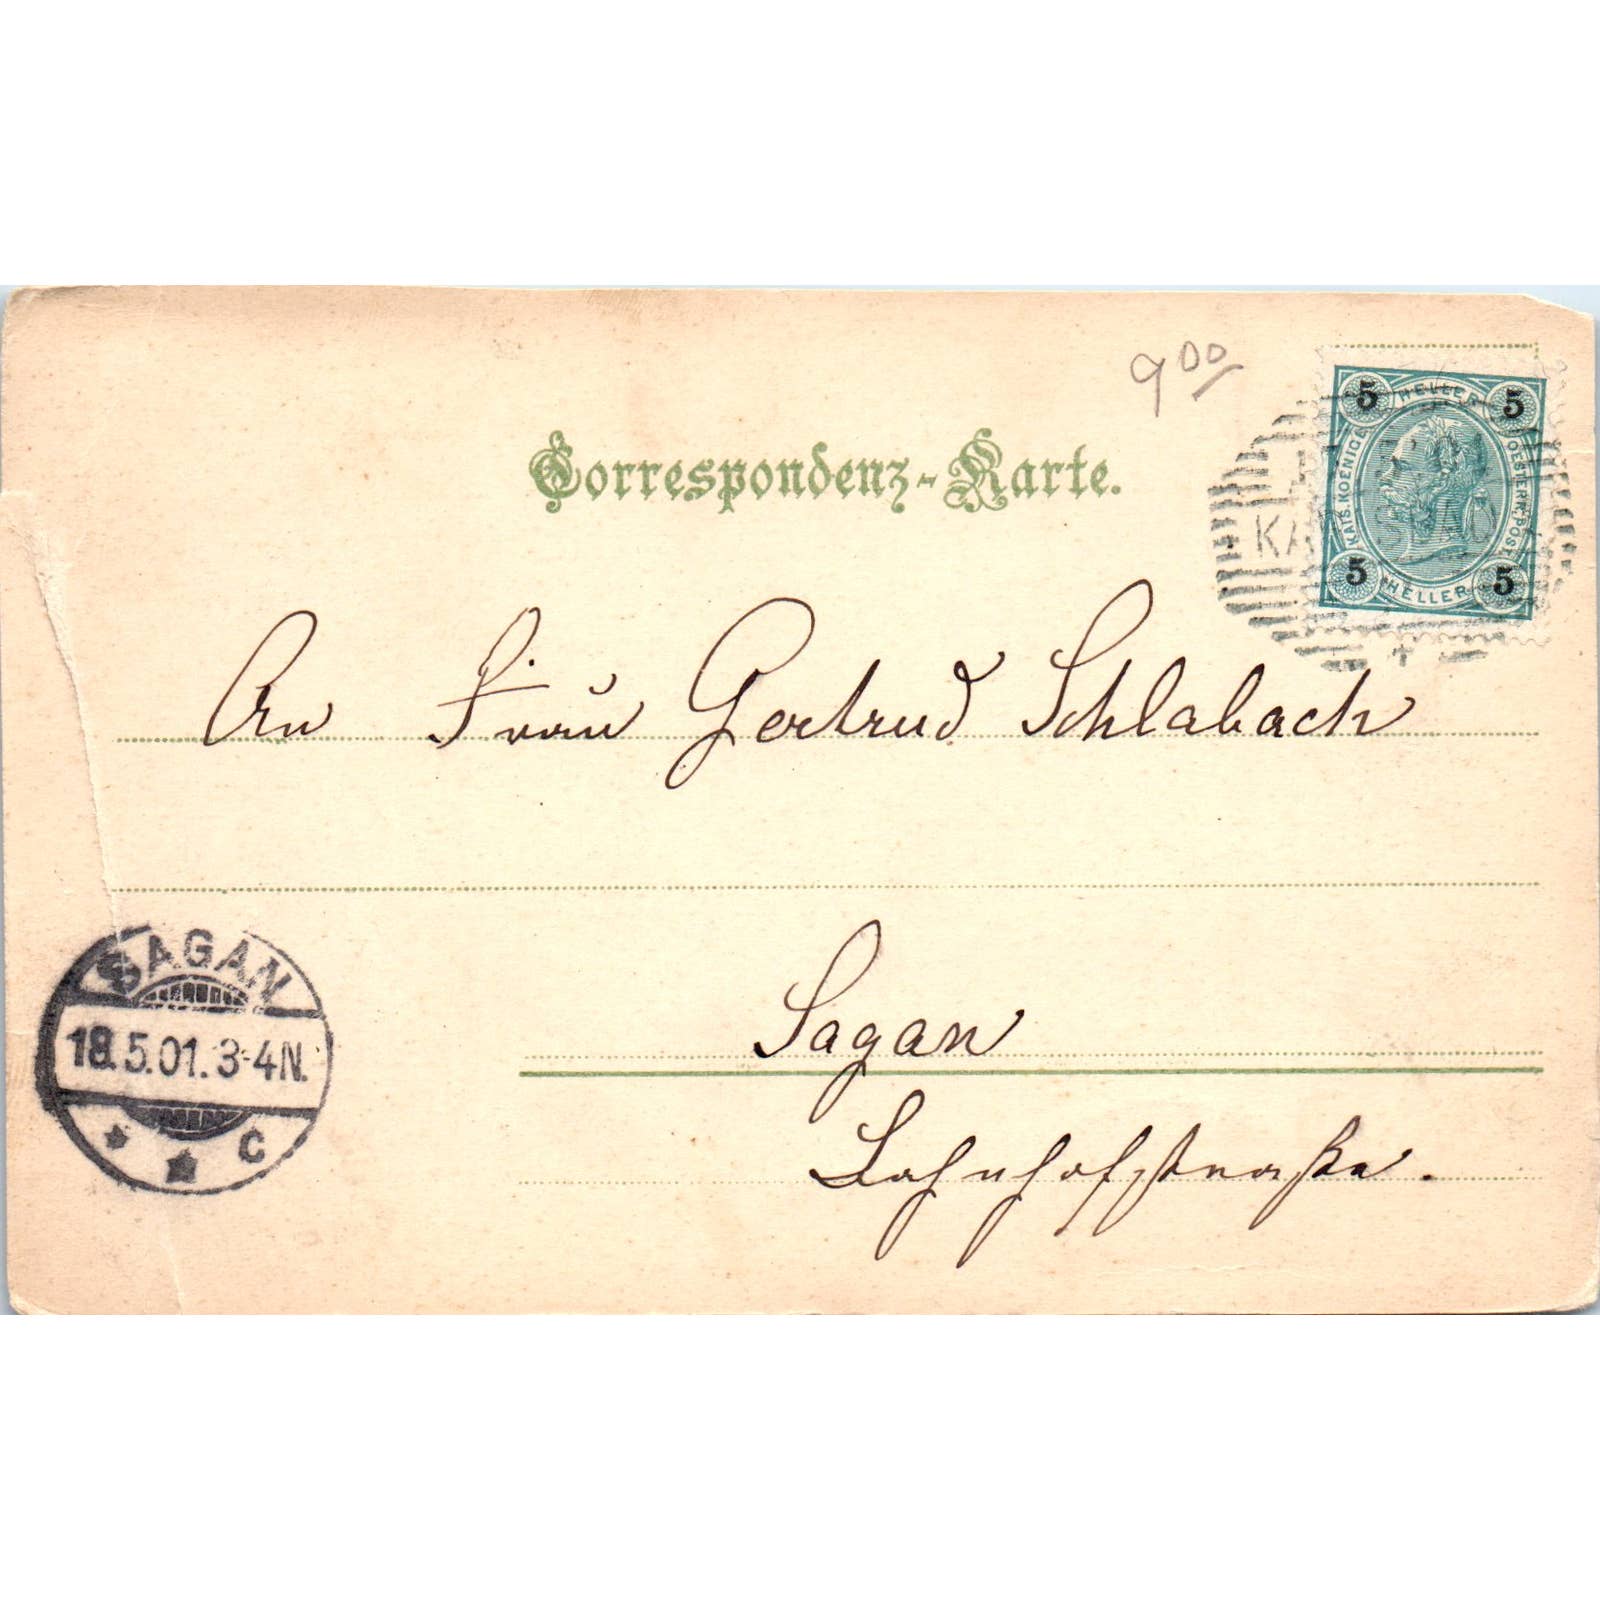 9 00
Correspondenz-Karte.
5 HELLER 5
KAIS. KOENIGL. OESTERR. POST
5 HELLER 5
An Frau Gertrud Schlabach
SAGAN
18.5.01. 3-4N.
* * C
Sagan
Bahnhofstraße.